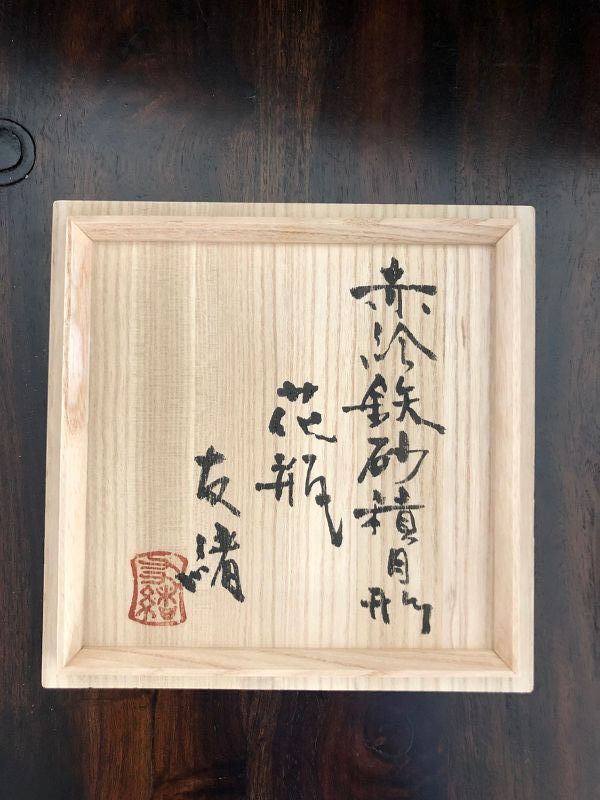 赤絵鉄砂積月形
花瓶
友緒
友緒